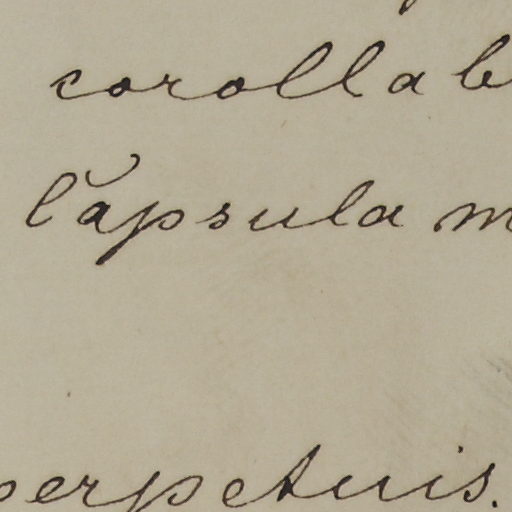 corolla b
Capsula m
perpetuis.